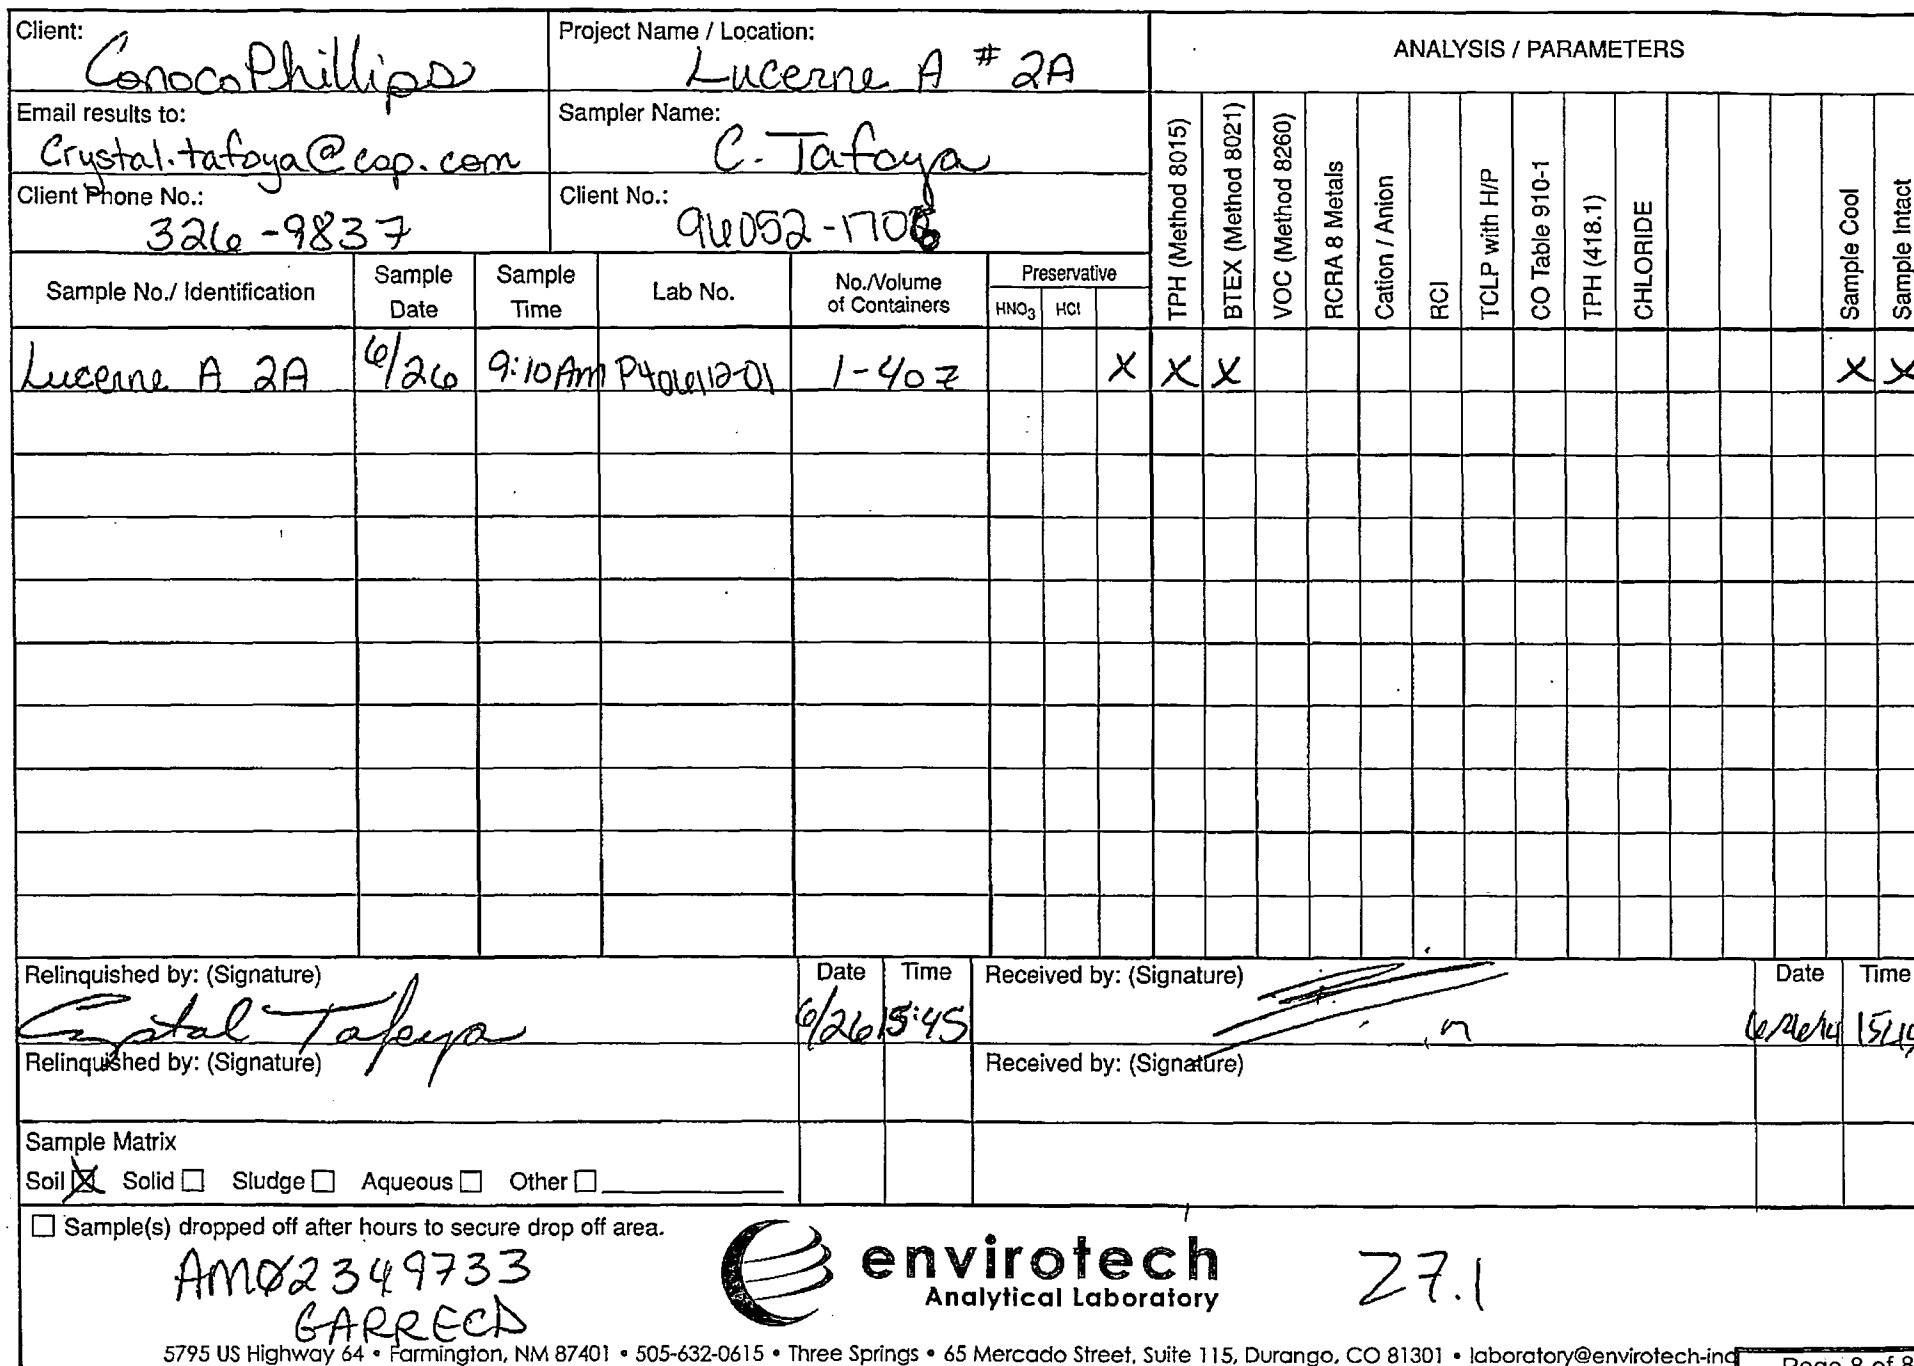 Client:
ConocoPhillips
Project Name / Location:
Lucerne A # 2A
ANALYSIS / PARAMETERS
Email results to:
Crystal.tafoya@cop.com
Sampler Name:
C. Tafoya
Client Phone No.:
326-9837
Client No.:
96052-1706
Sample No./ Identification
Sample Date
Sample Time
Lab No.
No./Volume of Containers
Preservative
HNO3 HCl
TPH (Method 8015)
BTEX (Method 8021)
VOC (Method 8260)
RCRA 8 Metals
Cation / Anion
RCI
TCLP with H/P
CO Table 910-1
TPH (418.1)
CHLORIDE
Sample Cool
Sample Intact
Lucerne A 2A 6/26 9:10 Am P406112-01 1-4oz X X X X X
Relinquished by: (Signature) Date Time Received by: (Signature) Date Time
Crystal Tafoya 6/26 15:45 6/26/14
Relinquished by: (Signature) Received by: (Signature)
Sample Matrix
Soil X Solid Sludge Aqueous Other
Sample(s) dropped off after hours to secure drop off area.
AMØ2349733
GARRECD
envirotech
Analytical Laboratory
27.1
5795 US Highway 64 • Farmington, NM 87401 • 505-632-0615 • Three Springs • 65 Mercado Street, Suite 115, Durango, CO 81301 • laboratory@envirotech-inc
Page 8 of 8